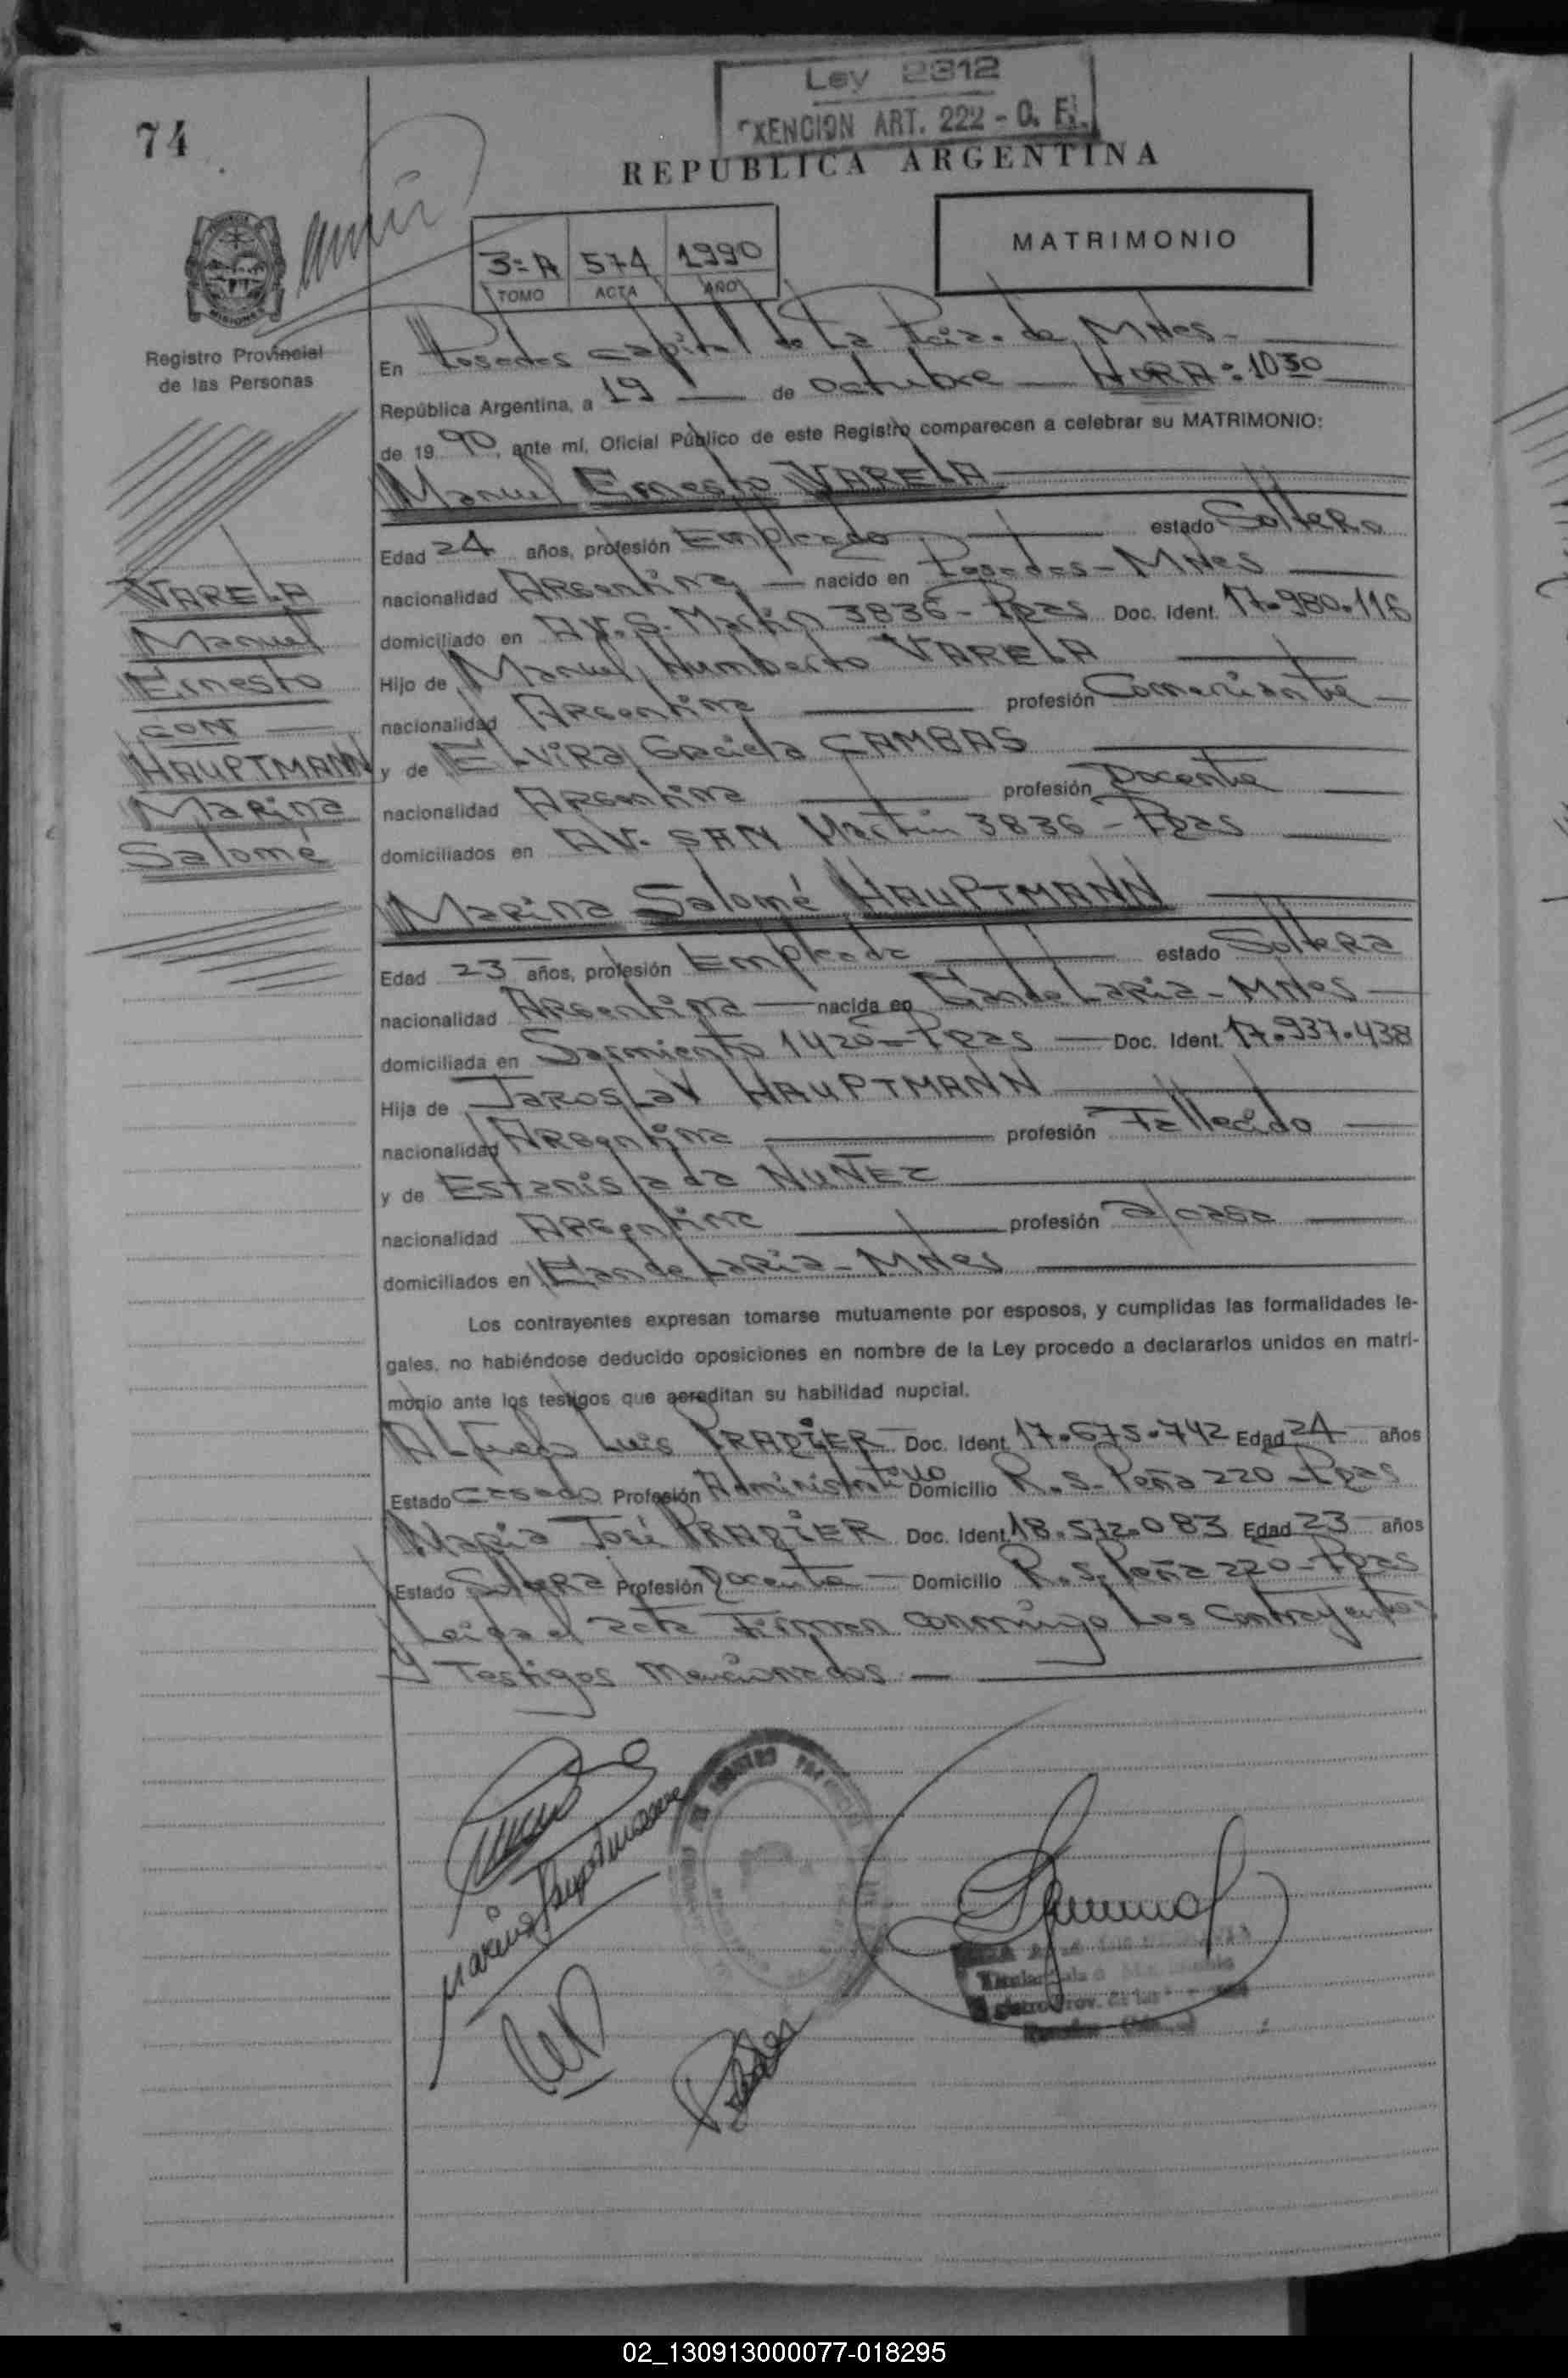 Ley 2312
EXENCION ART. 222 - C. F.
74
REPUBLICA ARGENTINA
MATRIMONIO
3=A 574 1990
TOMO ACTA AÑO
PROVINCIA
MISIONES
Registro Provincial
de las Personas
En Posadas capital de la Pcia. de Mnes-
República Argentina, a 19 de octubre HORA: 1030
de 1990, ante mí, Oficial Público de este Registro comparecen a celebrar su MATRIMONIO:
Manuel Ernesto VARELA
Edad 24 años, profesión Empleado estado Soltero
nacionalidad Argentina nacido en Posadas-Mnes
domiciliado en AV. S. Martin 3836-Pdas Doc. Ident. 17.980.116
Hijo de Manuel Humberto VARELA
nacionalidad Argentina profesión Comerciante
y de ELVIRA Graciela CAMBAS
nacionalidad Argentina profesión Docente
domiciliados en AV. SAN Martin 3836-Pdas
VARELA
Manuel
Ernesto
CON
HAUPTMANN
Marina
Salomé
Marina Salomé HAUPTMANN
Edad 23 años, profesión Empleada estado Soltera
nacionalidad Argentina nacida en Candelaria-Mnes
domiciliada en Sarmiento 1420-Pdas Doc. Ident. 17.937.438
Hija de Jaroslav HAUPTMANN
nacionalidad Argentina profesión Fallecido
y de Estanislada NUÑEZ
nacionalidad Argentina profesión a/casa
domiciliados en Candelaria-Mnes
Los contrayentes expresan tomarse mutuamente por esposos, y cumplidas las formalidades le-
gales, no habiéndose deducido oposiciones en nombre de la Ley procedo a declararlos unidos en matri-
monio ante los testigos que acreditan su habilidad nupcial.
Alfredo Luis PRADIER Doc. Ident. 17.675.742 Edad 24 años
Estado Casado Profesión Administrativo Domicilio R. S. Peña 220-Pdas
Maria José PRADIER Doc. Ident. 18.572.083 Edad 23 años
Estado Soltera Profesión Docente Domicilio R. S. Peña 220-Pdas
Leida el acta firman conmigo los Contrayentes
y Testigos mencionados
Marina Hauptmann
02_130913000077-018295